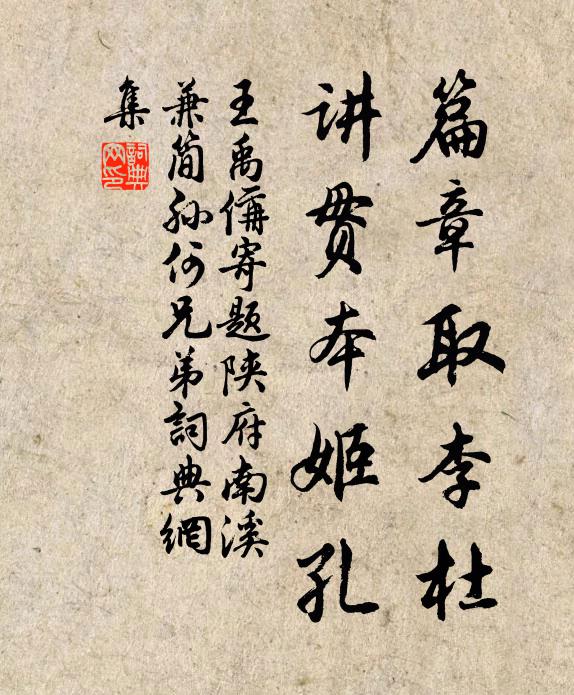 篇章取李杜
讲贯本姬孔
王禹偁寄題陕府南溪
兼简孙何兄弟詞典網
集
詞典網印